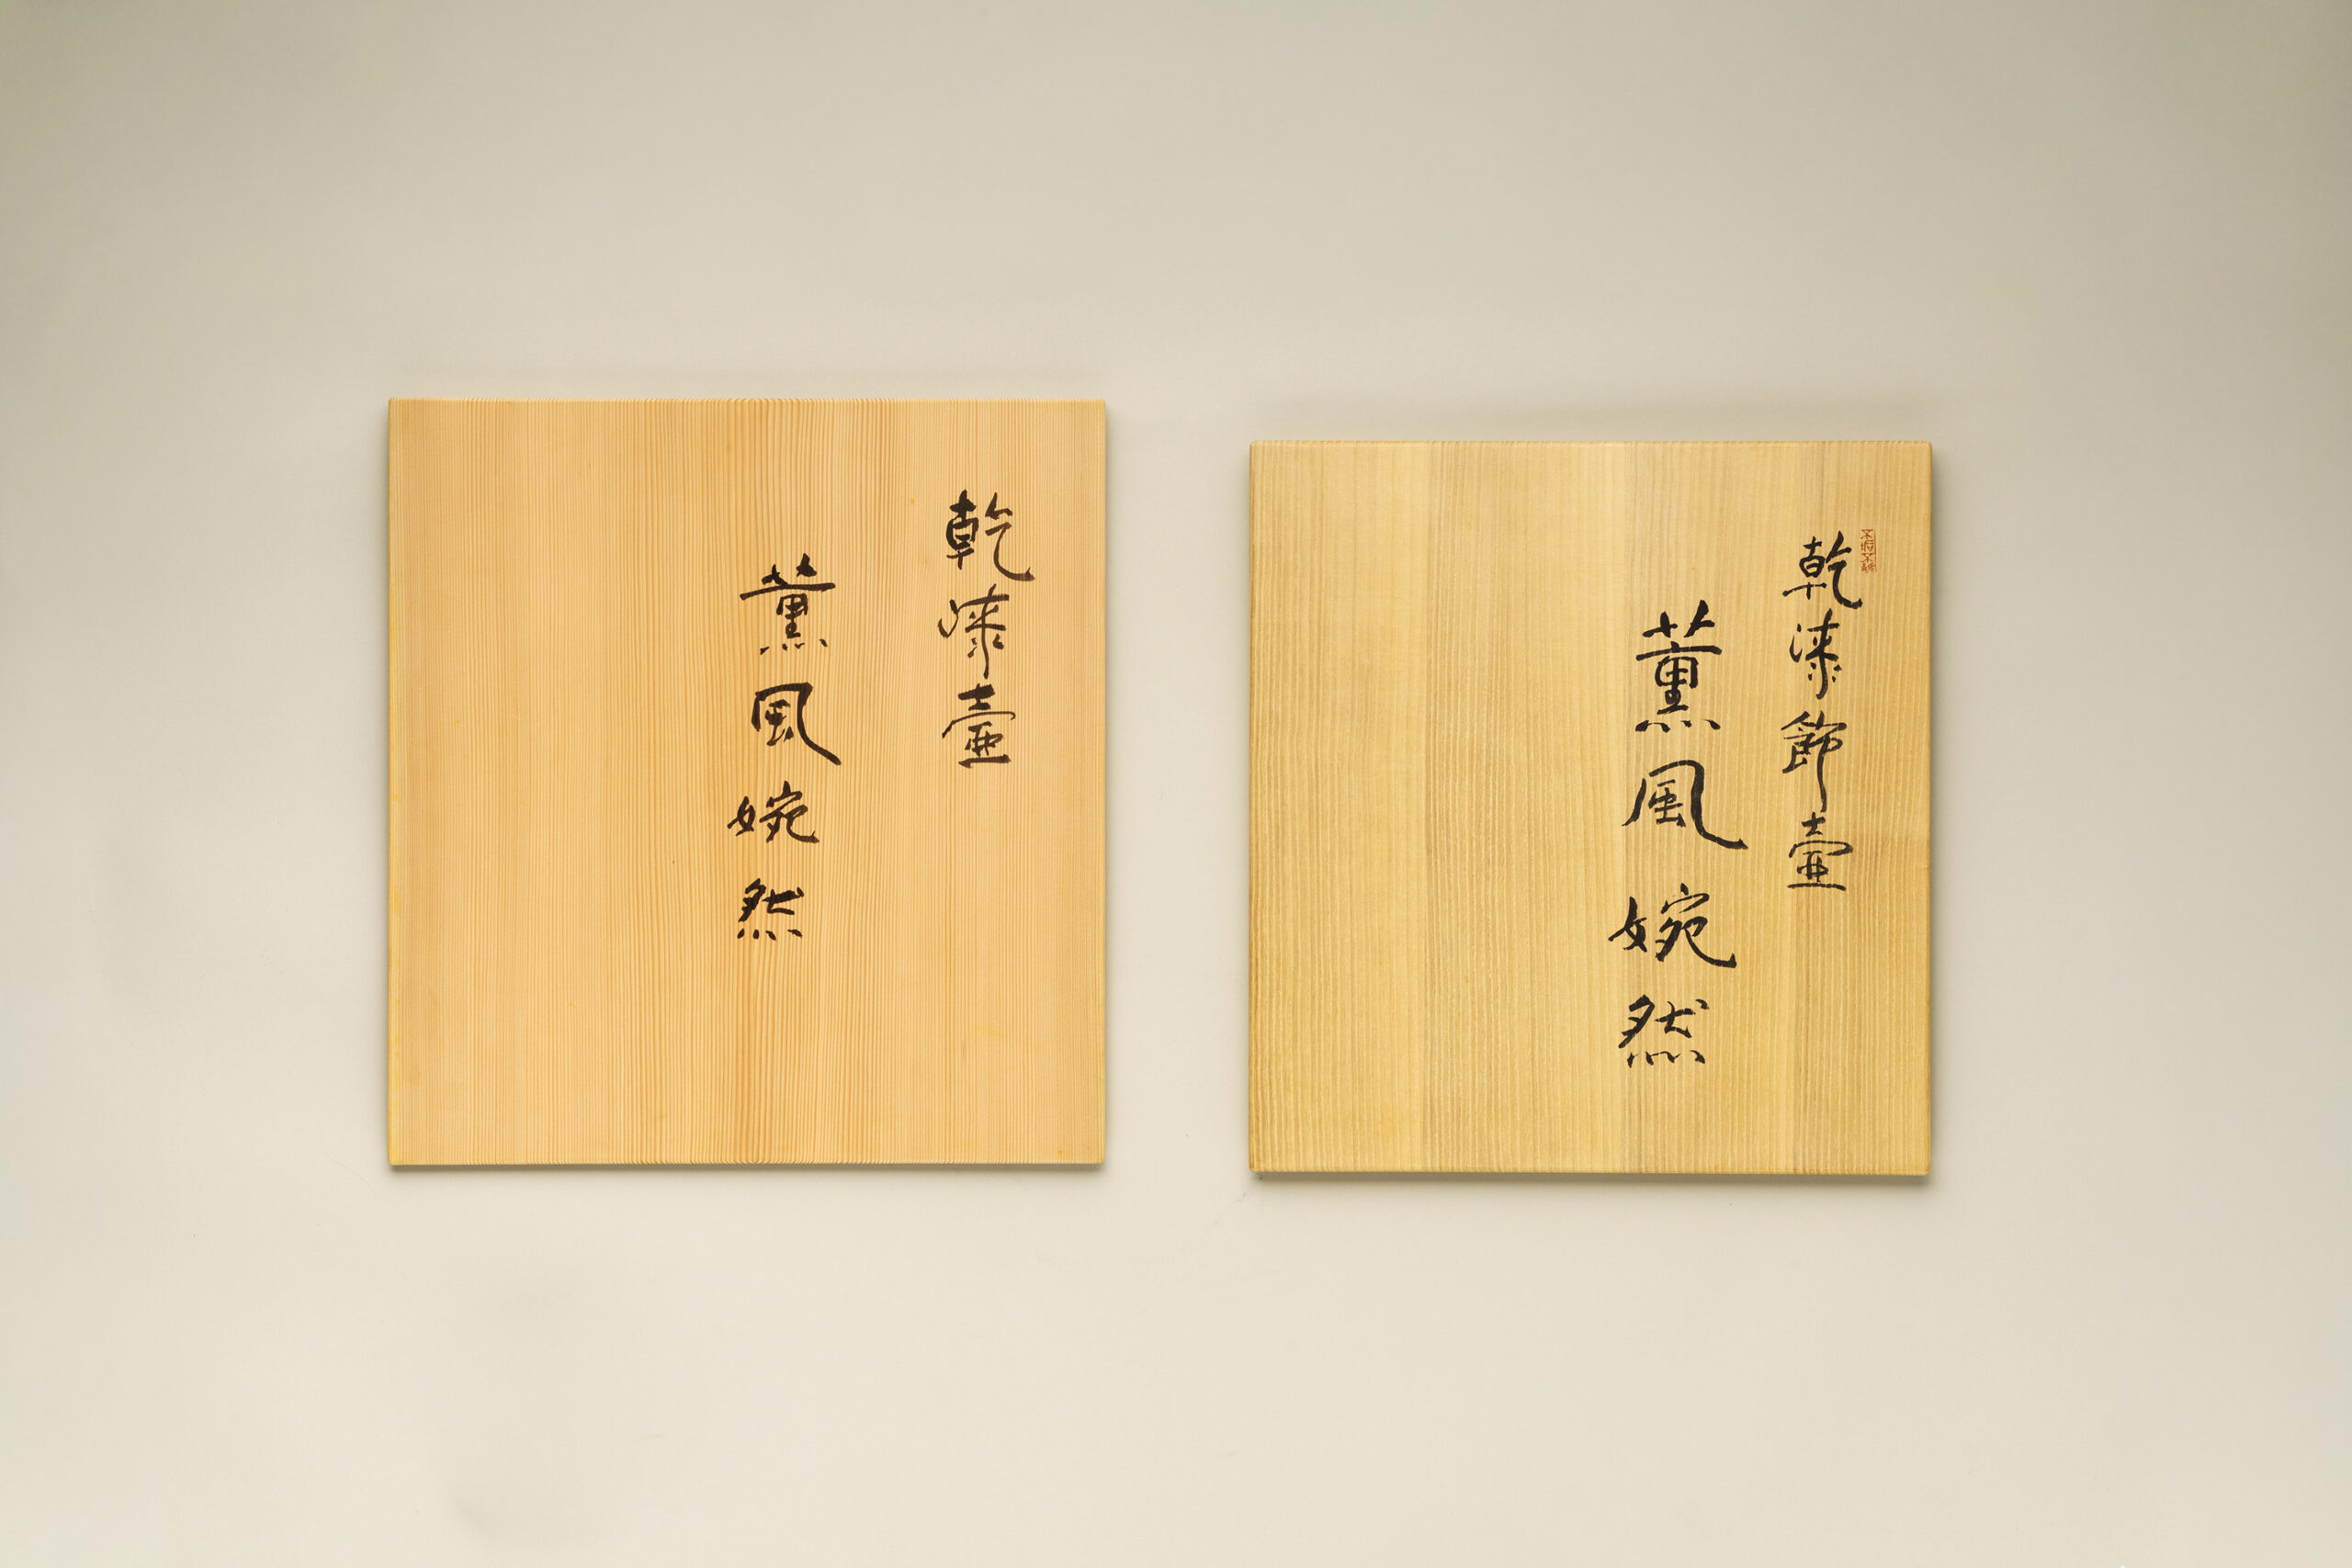 乾漆壷
薫風婉然
乾漆飾壷
薫風婉然